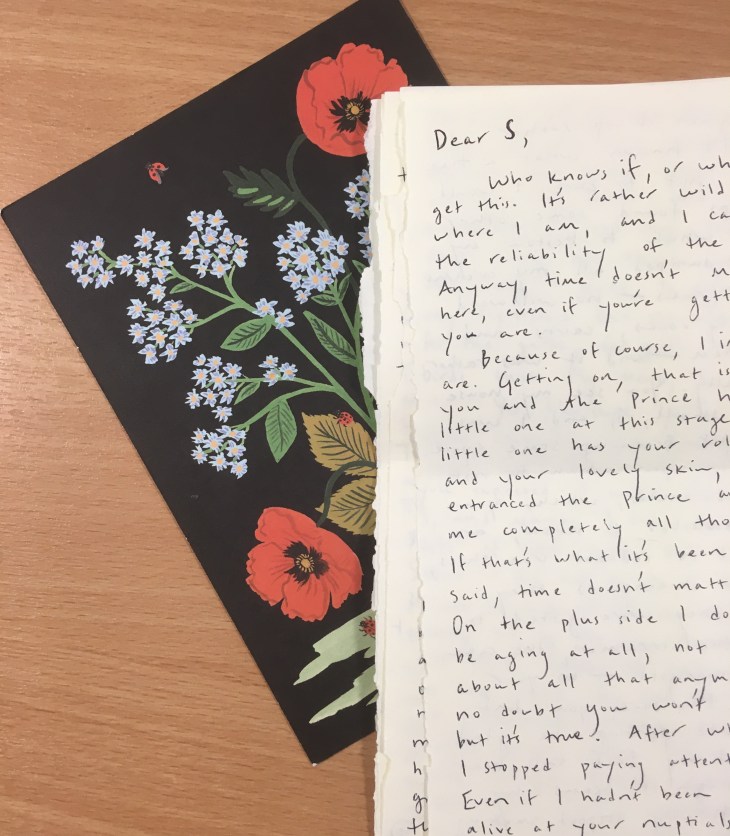 Dear S,
Who knows if, or wh
get this. It's rather wild
where I am, and I ca
the reliability of the
Anyway, time doesn't m
here, even if you're gett
you are.
Because of course, I i
are. Getting on, that is
you and the Prince h
little one at this stage
little one has your ro
and your lovely skin,
entranced the prince a
me completely all tho
If that's what it's been
said, time doesn't matt
On the plus side I do
be aging at all, not
about all that anym
no doubt you won't
but it's true. After wh
I stopped paying atten
Even if I hadn't been
alive at your nuptials